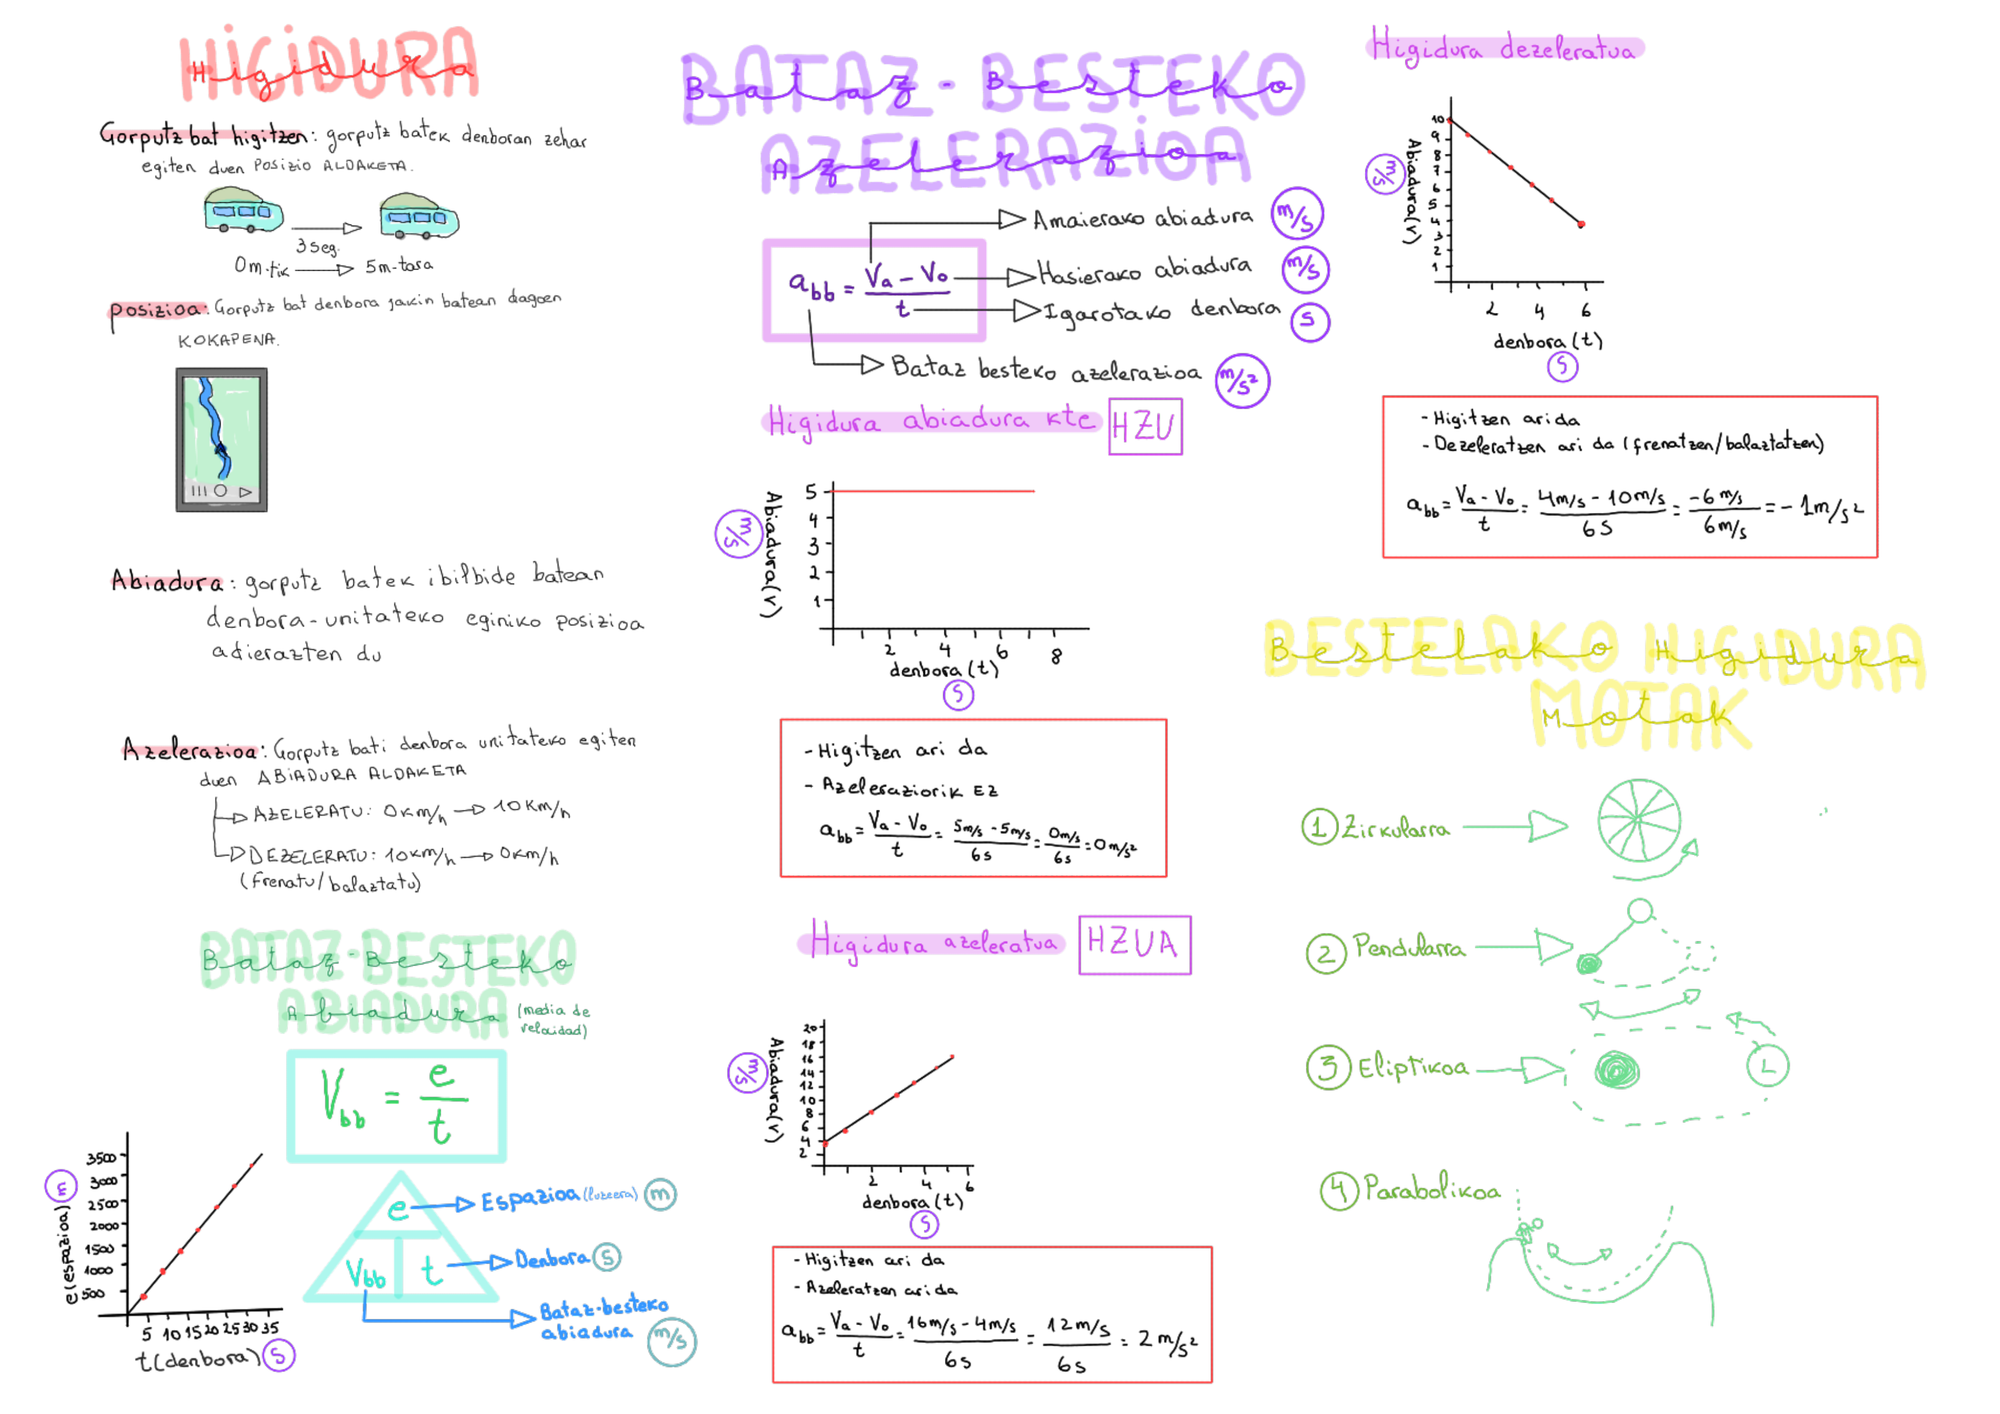 HiGiDURA
Higidura
Gorputz bat higitzen: gorputz batek denboran zehar
egiten duen POSIZIO ALDAKETA.
3 seg.
0m-tik 5m-tara
Posizioa: Gorputz bat denbora jakin batean dagoen
KOKAPENA.
Abiadura: gorputz batek ibilbide batean
denbora-unitateko eginiko posizioa
adierazten du
Azelerazioa: Gorputz bati denbora unitateko egiten
duen ABIADURA ALDAKETA
AZELERATU: 0km/h 10km/h
DEZELERATU: 10km/h 0km/h
(frenatu/balaztatu)
BATAZ-BESTEKO
Bataz-Besteko
ABIADURA
Abiadura
(media de
velocidad)
Vbb = e/t
3500
3000
2500
2000
1500
1000
500
e(espazioa) m
5 10 15 20 25 30 35
t(denbora) s
e
Vbb t
Espazioa (luzeera) m
Denbora s
Bataz-besteko
abiadura m/s
BATAZ-BESTEKO
Bataz-Besteko
AZELERAZIOA
Azelerazioa
abb = Va - Vo / t
Amaierako abiadura m/s
Hasierako abiadura m/s
Igarotako denbora s
Bataz besteko azelerazioa m/s²
Higidura abiadura kte HZU
5
4
3
2
1
Abiadura(v) m/s
2 4 6 8
denbora (t)
s
- Higitzen ari da
- Azeleraziorik EZ
abb = Va - Vo / t = 5m/s - 5m/s / 6s = 0m/s / 6s = 0m/s²
Higidura azeleratua HZUA
20
18
16
14
12
10
8
6
4
2
Abiadura(v) m/s
2 4 6
denbora (t)
s
- Higitzen ari da
- Azeleratzen ari da
abb = Va - Vo / t = 16m/s - 4m/s / 6s = 12m/s / 6s = 2m/s²
Higidura dezeleratua
10
9
8
7
6
5
4
3
2
1
Abiadura(v) m/s
2 4 6
denbora (t)
s
- Higitzen ari da
- Dezeleratzen ari da (frenatzen/balaztatzen)
abb = Va - Vo / t = 4m/s - 10m/s / 6s = -6m/s / 6m/s = -1m/s²
BESTELAKO HIGIDURA
Bestelako Higidura
MOTAK
Motak
1 Zirkularra
2 Pendularra
3 Eliptikoa
L
4 Parabolikoa